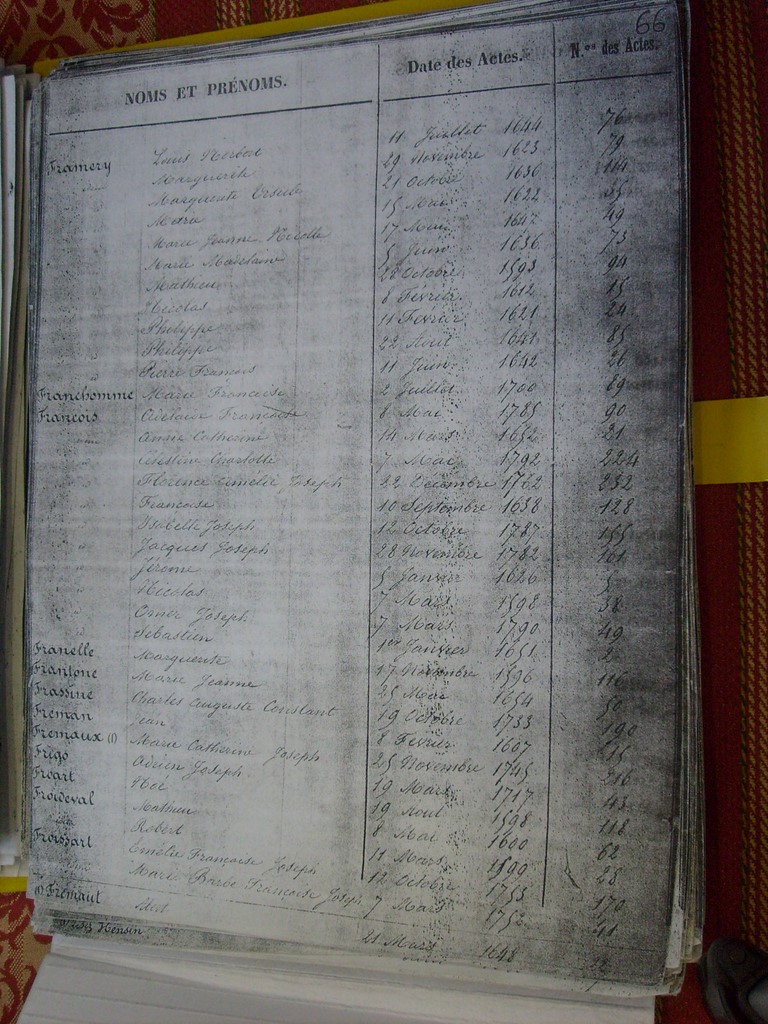 66
NOMS ET PRÉNOMS. Date des Actes. N.os des Actes.
Framery Louis Norbert 11 Juillet 1644 76
Marguerite 29 Novembre 1623 79
Marguerite Ursule 21 Octobre 1636 114
15 Mai 1622
Marie Jeanne Nicolle 17 1647 49
Marie Madelaine 5 Juin 1636 73
Mathieu 28 Octobre 1593 94
Nicolas 8 Février 1612 15
Philippe 11 Février 1621 24
Philippe 22 Aout 1641 85
Pierre François 11 Juin 1642 26
Franchomme Marie Françoise 2 Juillet 1700 69
François Adelaide Françoise 8 Mai 1785 90
Annie Catherine 14 Mars 1652 21
Célestine Charlotte 7 Mai 1792 224
Florence Amélie Joseph 22 Décembre 1762 252
Françoise 10 Septembre 1638 128
Isabelle Joseph 12 Octobre 1787 155
Jacques Joseph 28 Novembre 1782 161
Jérome 5 Janvier 1626 5
Nicolas 7 Mars 1598 38
Omer Joseph 7 Mars 1790 49
Sébastien 1er Janvier 1651 2
Franelle Marguerite 17 Novembre 1596 116
Frantone Marie Jeanne 25 Mai 1654 50
Frassine Charles Auguste Constant 19 Octobre 1733 190
Freman Jean 8 Février 1607 15
Fremaux (1) Marie Catherine Joseph 25 Novembre 1745 216
Frigo Adrien Joseph 19 Mars 1717 43
Froart Noé 19 Aout 1598 118
Froideval Mathieu 8 Mai 1600 62
Robert 11 Mars 1599 28
Froissart Emélie Françoise Joseph 12 Octobre 1753 170
Marie Barbe Françoise Joseph 7 Mars 1752 41
(1) Fremaut 21 Mars 1648 22
Hensin